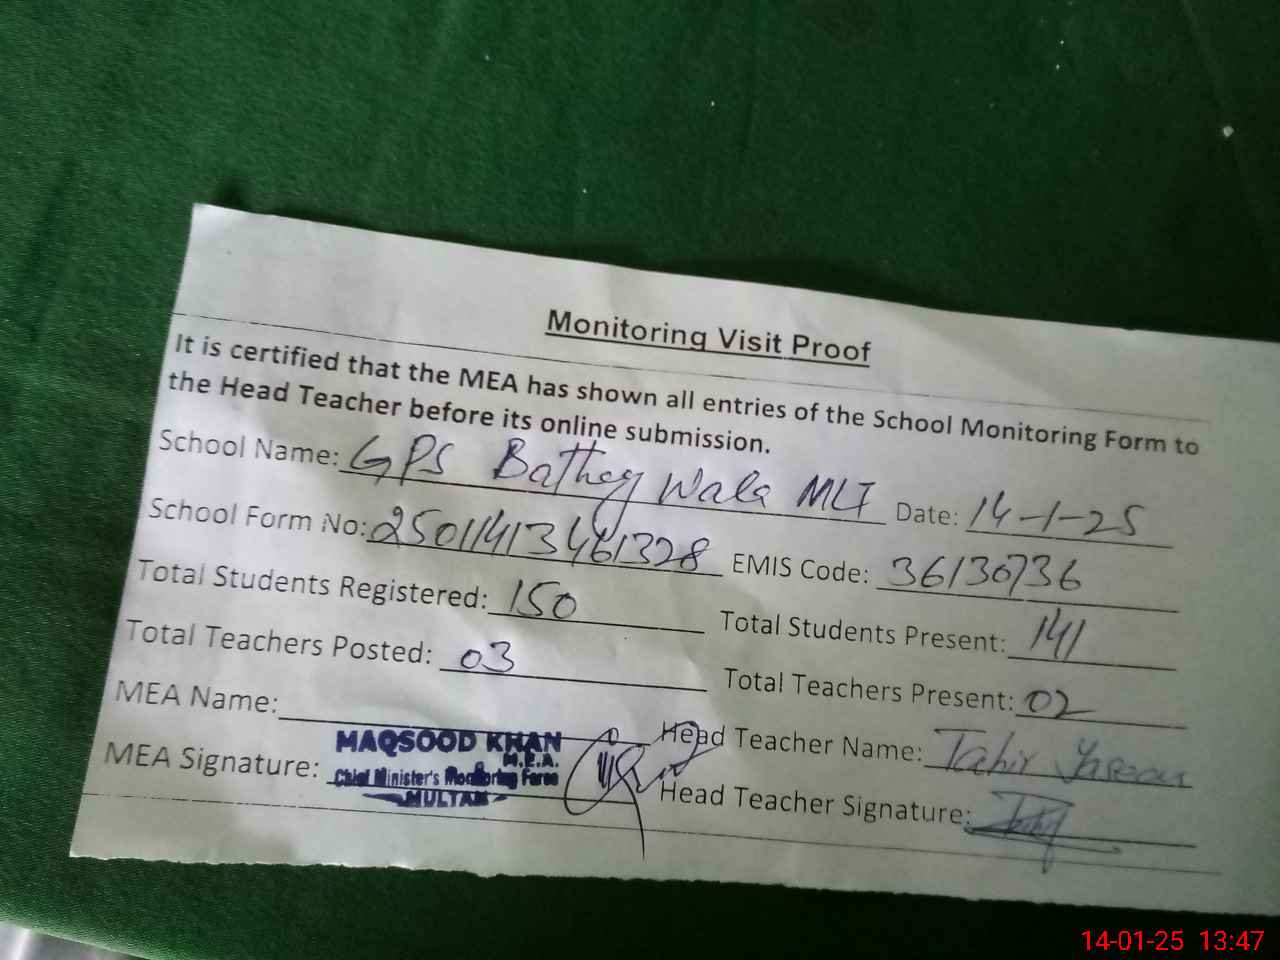 Monitoring Visit Proof
It is certified that the MEA has shown all entries of the School Monitoring Form to
the Head Teacher before its online submission.
School Name: GPS Bathey Wala MLT Date: 14-1-25
School Form No: 25011413461328 EMIS Code: 36130736
Total Students Registered: 150 Total Students Present: 141
Total Teachers Posted: 03 Total Teachers Present: 02
MEA Name: Head Teacher Name: Tahir
MEA Signature: Head Teacher Signature:
MAQSOOD KHAN
M.E.A.
Chief Minister's Monitoring Force
MULTAN
14-01-25 13:47